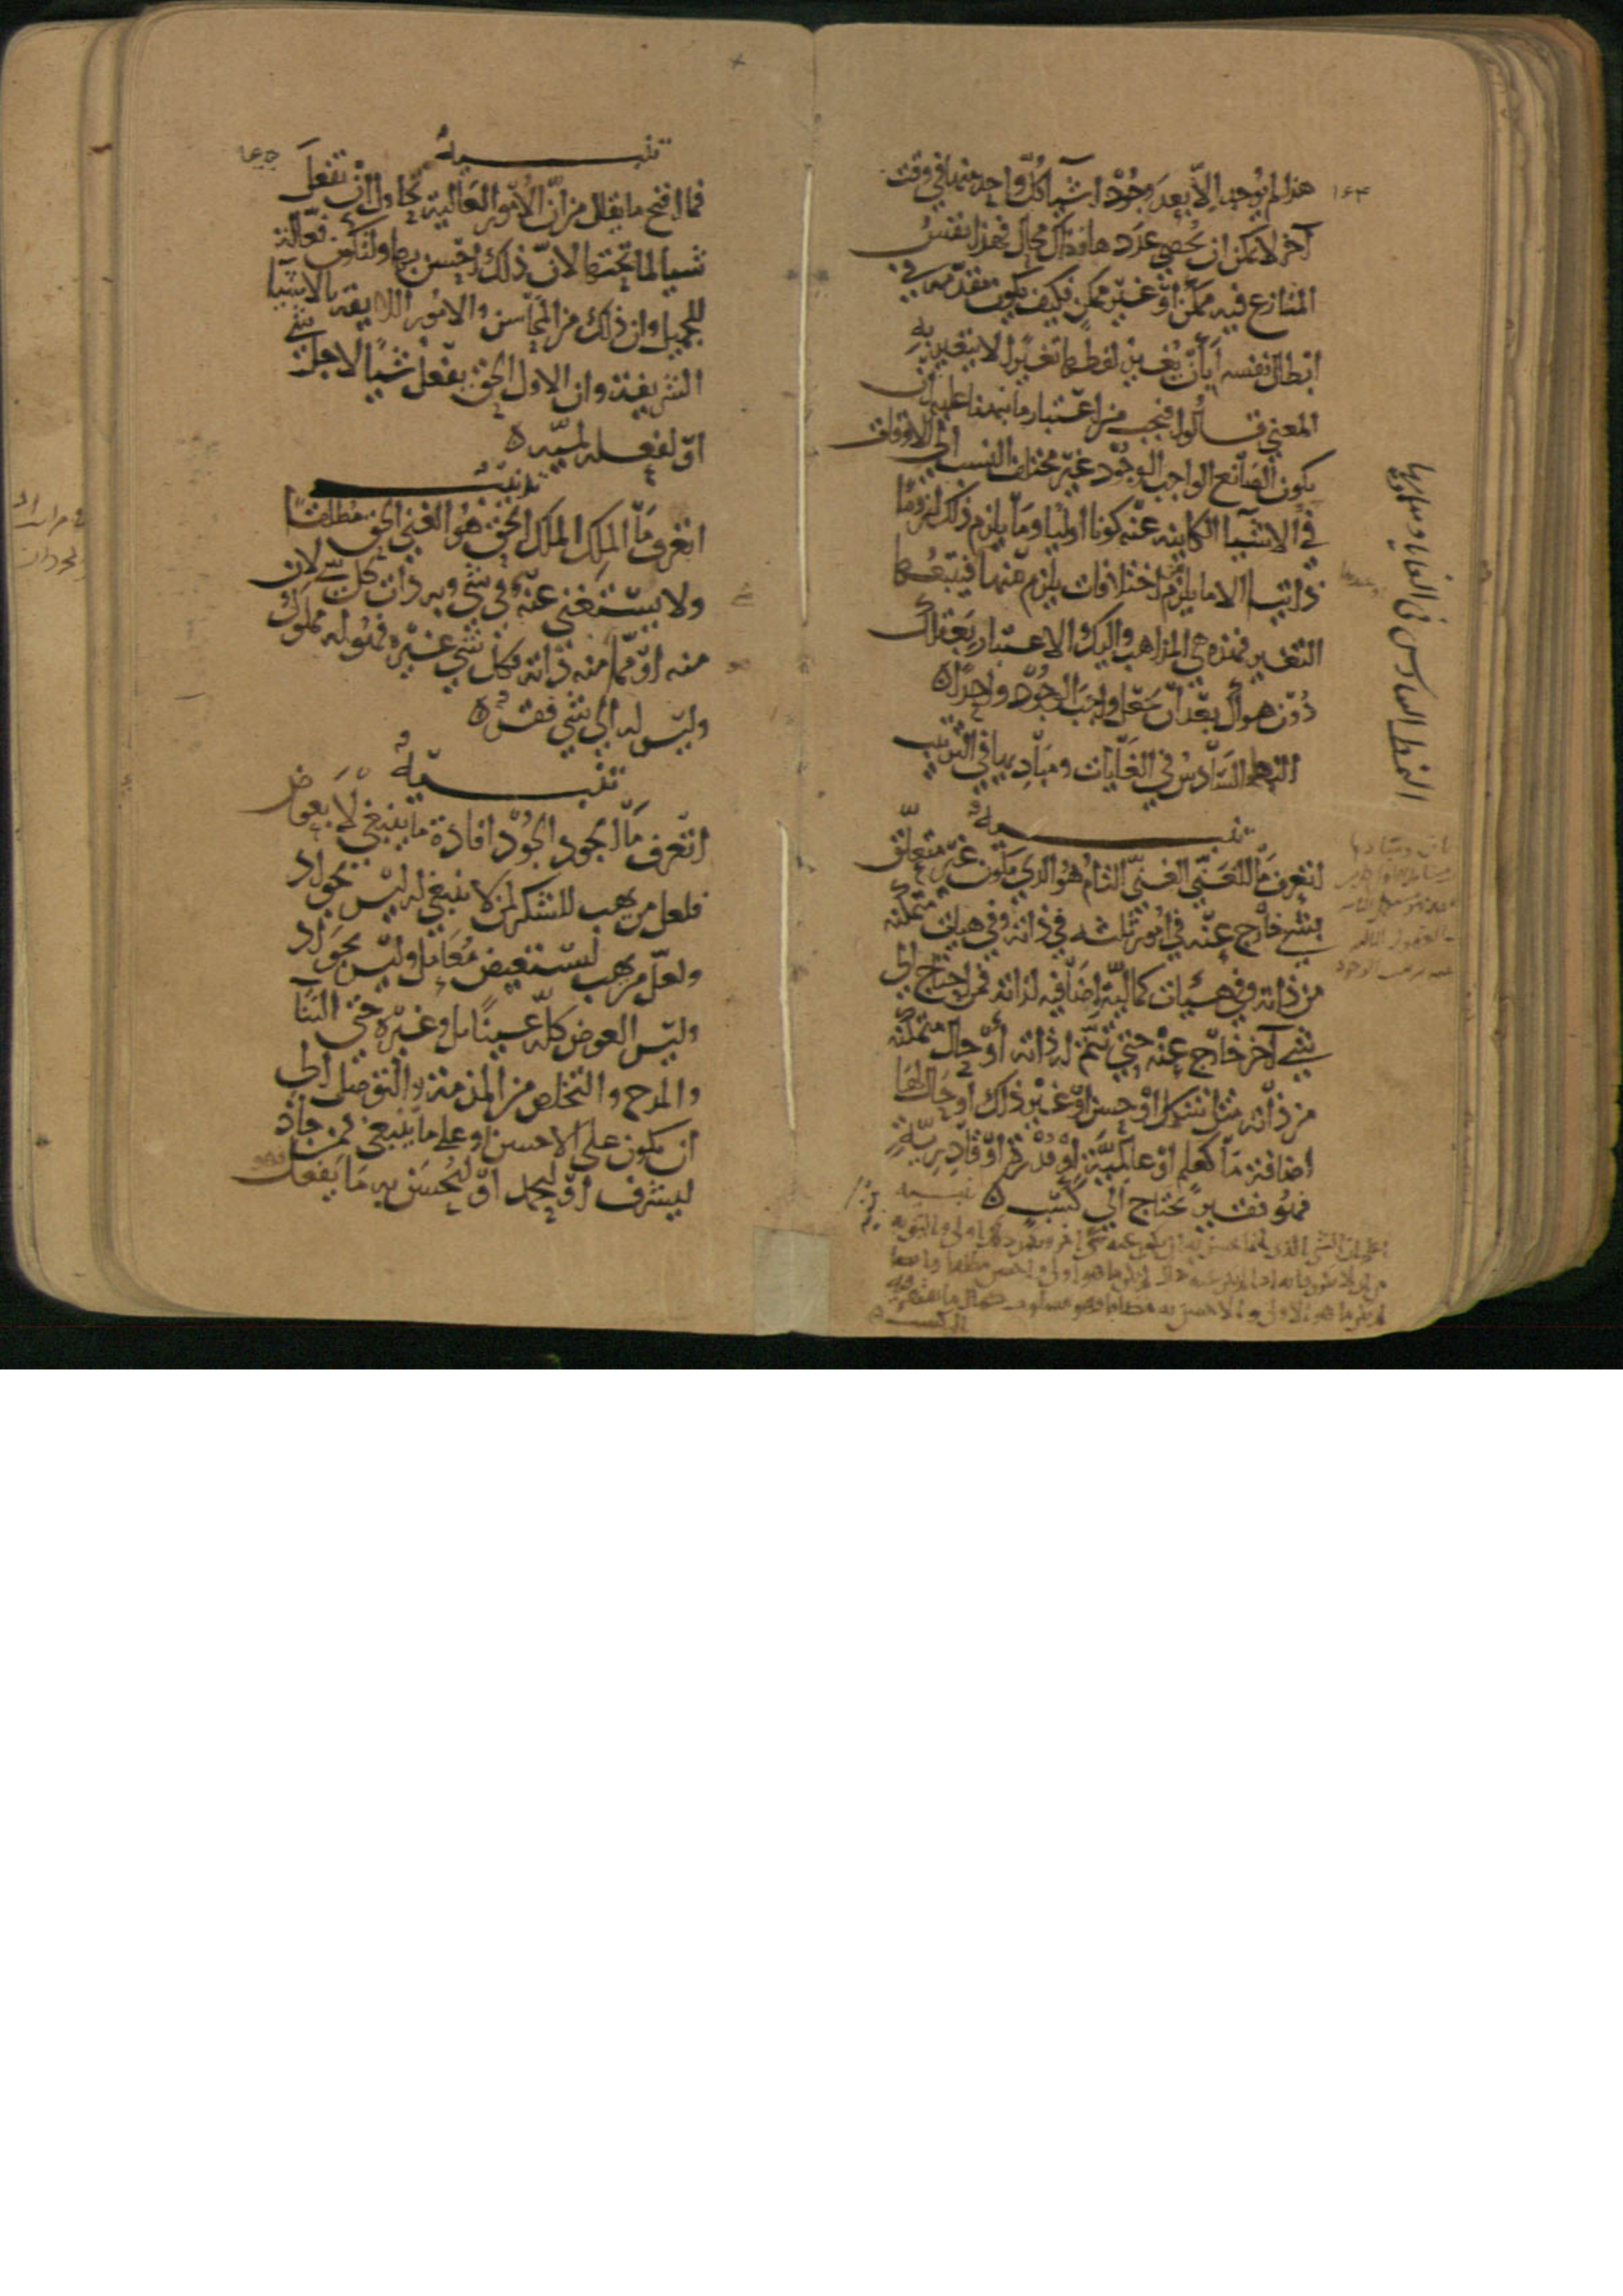 ١٦٤
هذا لم يوجد الا بعد وجود اشياء كل واحد منها في وقت
آخر لا يمكن ان يحصى عددها فذلك محال فهذا نفس
المتنازع فيه ممكن او غير ممكن فكيف يكون مقدمة في
ابطال نفسه أبأن يغير لفظها تغيرا لا يتغير به
المعنى قالوا فيجب من اعتبار ما نبهنا عليه ان
يكون الصانع الواجب الوجود غير مختلف النسب الى الاوقات
في الاشياء الكاينة عنه كونا اوليا وما يلزم ذلك لزوما
ذاتيا الا ما يلزم من اختلافات يلزم عندها فيتبعها
التغير فهذه هي المذاهب واليك الاعتبار بعقلك
دون هواك بعد ان تجعل واجب الوجود واحدا ٥
النمط السادس في الغايات ومباديها في الترتيب
تنبيه
اتعرف ما الغني الغني التام هو الذي يكون غير متعلق
بشي خارج عنه في امور ثلثه في ذاته وفي هيات متمكنه
من ذاته وفي هيئات كمالية اضافيه لذاته فمن احتاج الى
شي آخر خارج عنه حتى تتم له ذاته أو حال متمكنه
من ذاته مثل شكل او حسن او غير ذلك او حال لها
اضافة ما كعلم او عالمية او قدرة او قادرية
فهو فقير محتاج الى كسب ٥
تنبيه
اعلم ان الشي الذي انما يحسن به ان يكون عنه شي آخر ويكون ذلك اولى واليق به
من ان لا يكون فانه اذا لم يكن عنه ذلك لم يكن ما هو اولى واحسن مطلقا وايضا
لم يكن ما هو الاولى والاحسن به مضافا فهو مسلوب كمال ما يفتقر فيه
الى كسب ٥
النمط السادس في الغايات ومباديها
١٦٥
تنبيه
فما اقبح ما يقال من ان الامور العالية تحاول ان تفعل
شيا لما تحتها لان ذلك احسن بها ولتكون فعالة
للجميل وان ذلك من المحاسن والامور اللايقة بالاشيا
الشريفة وان الاول الحق يفعل شيا لاجل شي
او لفعله لمية ٥
تنبيه
اتعرف ما الملك الملك الحق هو الغني الحق مطلقا
ولا يستغني عنه شي في شي وله ذات كل شي لان
منه او مما منه ذاته فكل شي غيره فهو له مملوك
وليس له الى شي فقر ٥
تنبيه
اتعرف ما الجود الجود افادة ما ينبغي لا بعوض
فلعل من يهب للشكر لمن لا ينبغي له ليس بجواد
ولعل من يهب ليستعيض معامل وليس بجواد
وليس العوض كله عينا بل وغيره حتى الثنا
والمدح والتخلص من المذمة والتوصل الى
ان يكون على الاحسن او على ما ينبغي فمن جاد
ليشرف او ليحمد او ليحسن به ما يفعل